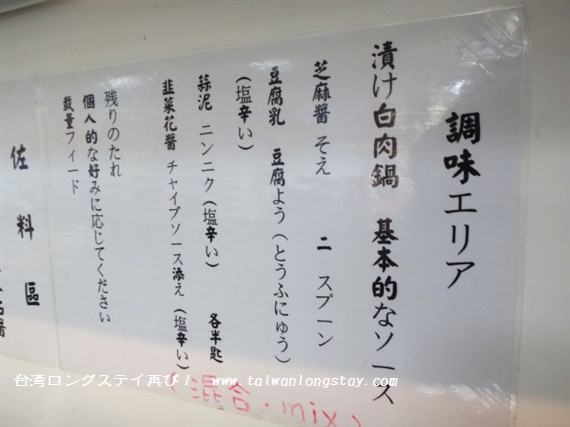 調味エリア
漬け白肉鍋 基本的なソース
芝麻醬 そえ 二 スプーン
豆腐乳 豆腐よう(とうふにゅう)
(塩辛い)
蒜泥 ニンニク(塩辛い) 各半匙
韭菜花醬 チャイブソース添え(塩辛い)
残りのたれ
個人的な好みに応じてください
裁量フィード
佐料區
(混合.mix)
台湾ロングステイ再び! www.taiwanlongstay.com